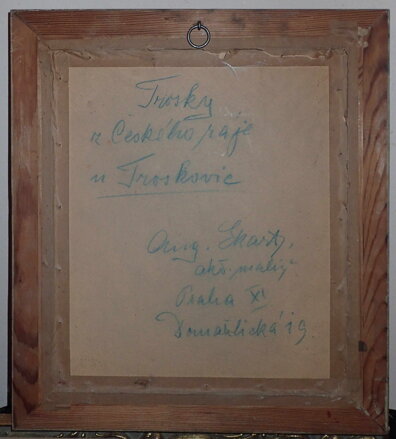 Trosky
z Českého ráje
u Troskovic
Aug.
akad. malíř
Praha XI
Domažlická 19.